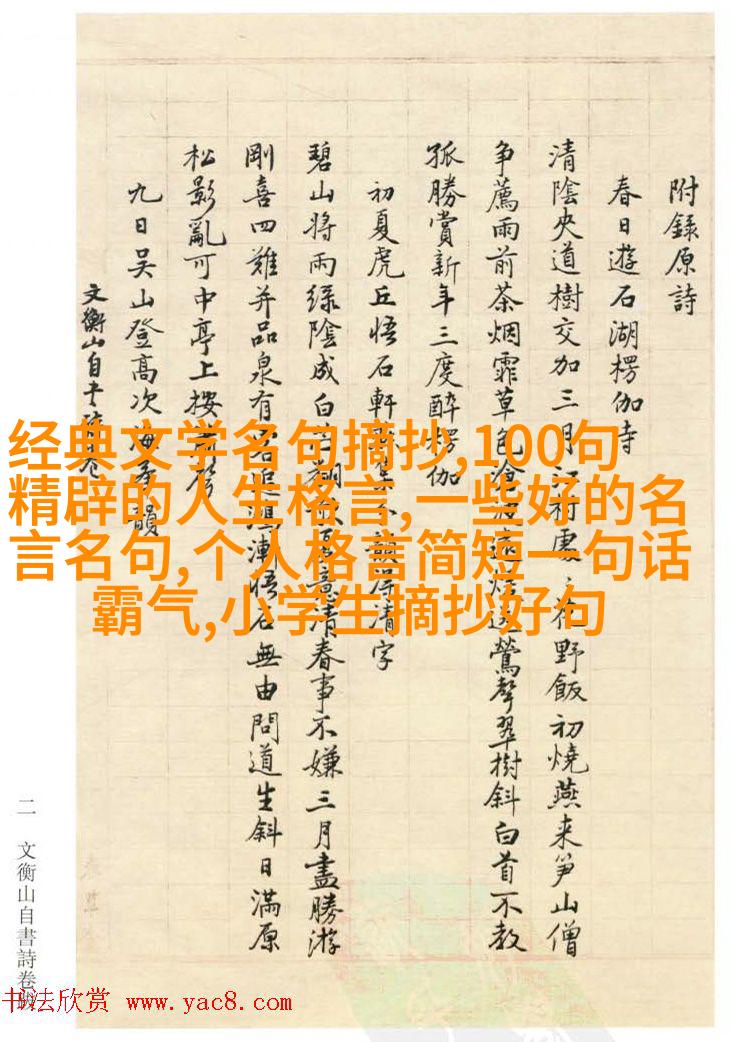 附錄原詩
春日遊石湖楞伽寺
清陰央道樹交加三月江村處〻花野飯初燒燕来笋山僧
争薦雨前茶烟霏草色滄波遠鶯聲翠樹斜白首不教
孤勝賞新年三度醉楞伽
初夏虎丘悟石軒集分韻得清字
碧山將雨緑陰成白苧意清春事不嫌三月盡勝游
剛喜四難并品泉有漸悟石無由問道生斜日滿原
松影亂可中亭上按
九日吴山登高次韻
文衡山自書詩卷
二 文衡山自書詩卷跋
经典文学名句摘抄,100句
精辟的人生格言,一些好的名
言名句,个人格言简短一句话
霸气,小学生摘抄好句
书法欣赏 www.yac8.com